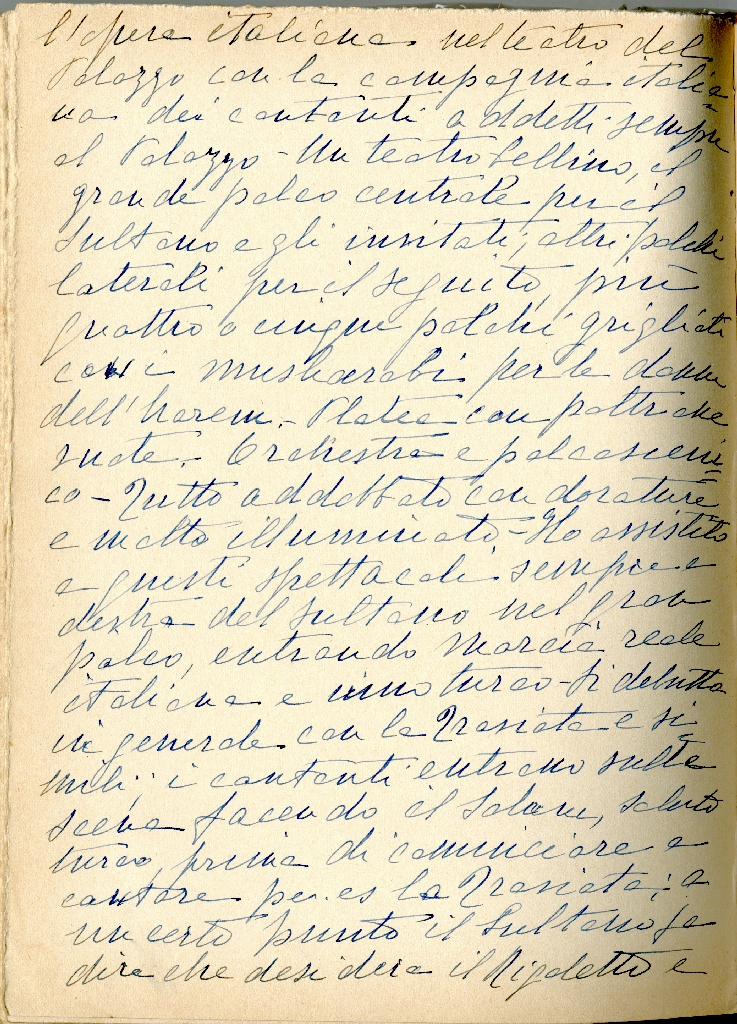 l'opera italiana nel teatro del
Palazzo con la compagnia italia=
na dei cantanti addetti sempre
al Palazzo - Un teatro bellino, il
grande palco centrale per il
Sultano e gli invitati, altri palchi
laterali per il seguito, più
quattro o cinque palchi grigliati
con i musharabi per le donne
dell'harem. - Platea con poltrone
vuote. - Orchestra e palcosceni=
co - Tutto addobbato con dorature
e molto illuminato - Ho assistito
a questi spettacoli sempre a
destra del Sultano nel gran
palco, entrando marcia reale
italiana e inno turco - Si debutta
in generale con la Traviata e si
mili; i cantanti entrano sulla
scena facendo il Salam, saluto
turco, prima di cominciare a
cantare per es la Traviata; a
un certo punto il Sultano fa
dire che desidera il Rigoletto e